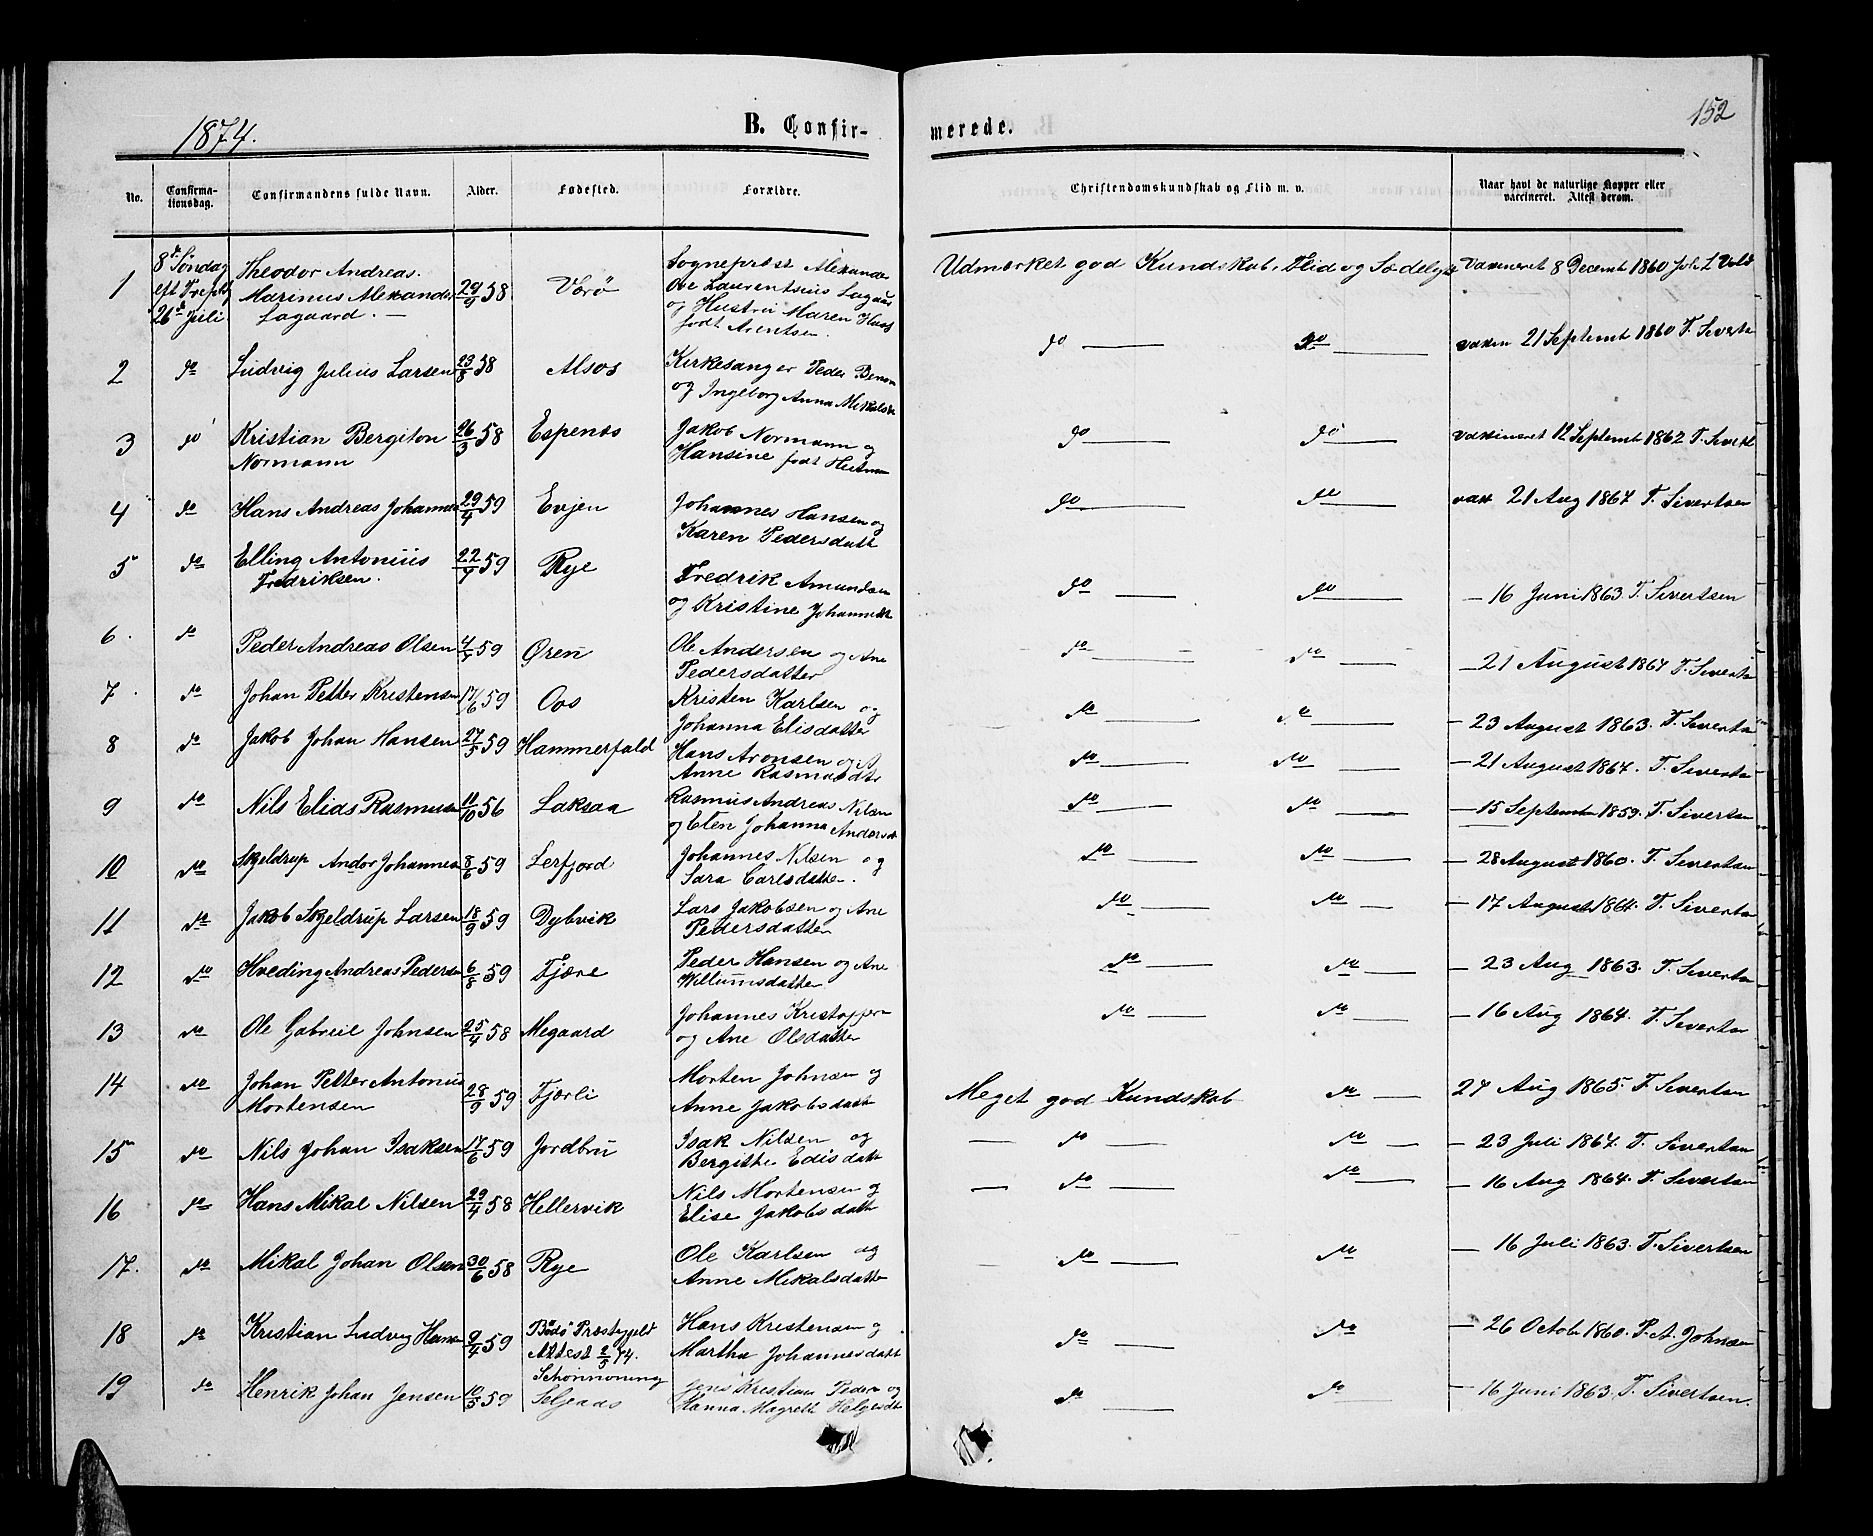 1874.
B. Confir-
merede.
152
No.
Confirma-
tionsdag.
Confirmandens fulde Navn.
Alder.
Fødested.
Forældre.
Christendomskundskab og Flid m. v.
Naar havt de naturlige Kopper eller
vaccineret. Attest derom.
1 8de Søndag eft Trefold 26de Juli. Theodor Andreas Marinus Alexander Lagaard. 29/9 58 Værø Sognepræst Alexander Ole Laurentsius Lagaard og Hustru Maren født Arentsen. Udmærket god Kundskab, Flid og Sædelighed Vaxineret 8 Decemt 1860
2 do Ludvig Julius Larsen 23/8 58 Alsos Kirkesanger Peder og Ingeborg Anna do do vaxin 21 Septemt 1860 T. Sivertsen
3 do Kristian Bergiton Normann 26/3 58 Espenes Jakob Normann og Hansine født do do vaxineret 12 Septemt 1862 T. Sivert
4 do Hans Andreas Johannes 29/4 59 Evjen Johannes Hansen og Karen Pedersdatt do do vax 21 Aug 1864 T. Sivertsen
5 do Elling Antonius Fredriksen. 22/4 59 Rye Fredrik Amundsen og Kristine Johannesdt do do — 16 Juni 1863. T. Sivertsen
6. do Peder Andreas Olsen 4/4 59 Øren Ole Andersen og Ane Pedersdatter do do — 21 August 1864 T. Sivertsen
7. do Johan Petter Kristensen 17/6 59 Oos Kristen Karlsen og Johanna Elisdatter do do — 23 August 1863. T. Siverts
8 do Jakob Johan Hansen 27/5 59 Hammerfald Hans Aronsen og Anne Rasmusdtr do do — 21 August 1864. T. Siverts
9 do Nils Elias Rasmusen 11/10 56 Laksaa Rasmus Andreas Nilsen og Elen Johanna Andersdt do do — 15 Septembr 1859. T. Sivertsen
10 do Skjeldrup Andor Johannesen 8/6 59 Lerfjord Johannes Nilsen og Sara Carlsdatter. do do — 28 August 1860. T. Sivertsen
11 do Jakob Skjeldrup Larsen 18/9 59 Dybvik Lars Jakobsen og Ane Pedersdatter do do — 17 August 1864. T. Sivertsen
12 do Hveding Andreas Pedersen 6/8 59 Fjære Peder Hansen og Ane Willumsdatter do do — 23 Aug 1863. T. Sivertsen
13 do Ole Gabreil Johnsen 25/4 58 Megaard Johannes Kristoppersen og Ane Olsdatter do do — 16 Aug 1864. T. Sivertsen
14 do Johan Petter Antonius Mortensen 28/9 59 Fjærli Morten Johnsen og Anne Jakobsdatt Meget god Kundskab do — 27 Aug 1865. T. Sivertsen
15 do Nils Johan Isaksen 17/6 59 Jordbru Isak Nilsen og Bergitte Edisdatt — do do — 23 Juli 1864. T. Sivertsen
16 do Hans Mikal Nilsen 29/4 58 Hellervik Nils Mortensen og Elise Jakobsdatt — do do — 16 Aug 1864. T. Sivertsen
17. do Mikal Johan Olsen 30/6 58 Rye Ole Karlsen og Anne Mikalsdatter do do — 16 Juli 1863. T. Sivertsen
18 do Kristian Ludvig Hansen 9/4 59 Bodø Præstegjeld Attest 2/5 74. Schönnoning Hans Kristensen og Martha Johannesdatt do do — 26 Octob 1860. P. A. Johnsen
19 do Henrik Johan Jensen 10/5 59 Seljeaas Jens Kristian Peders og Hanna Magrethe Helgesdt do do — 16 Juni 1863. T. Sivertsen.